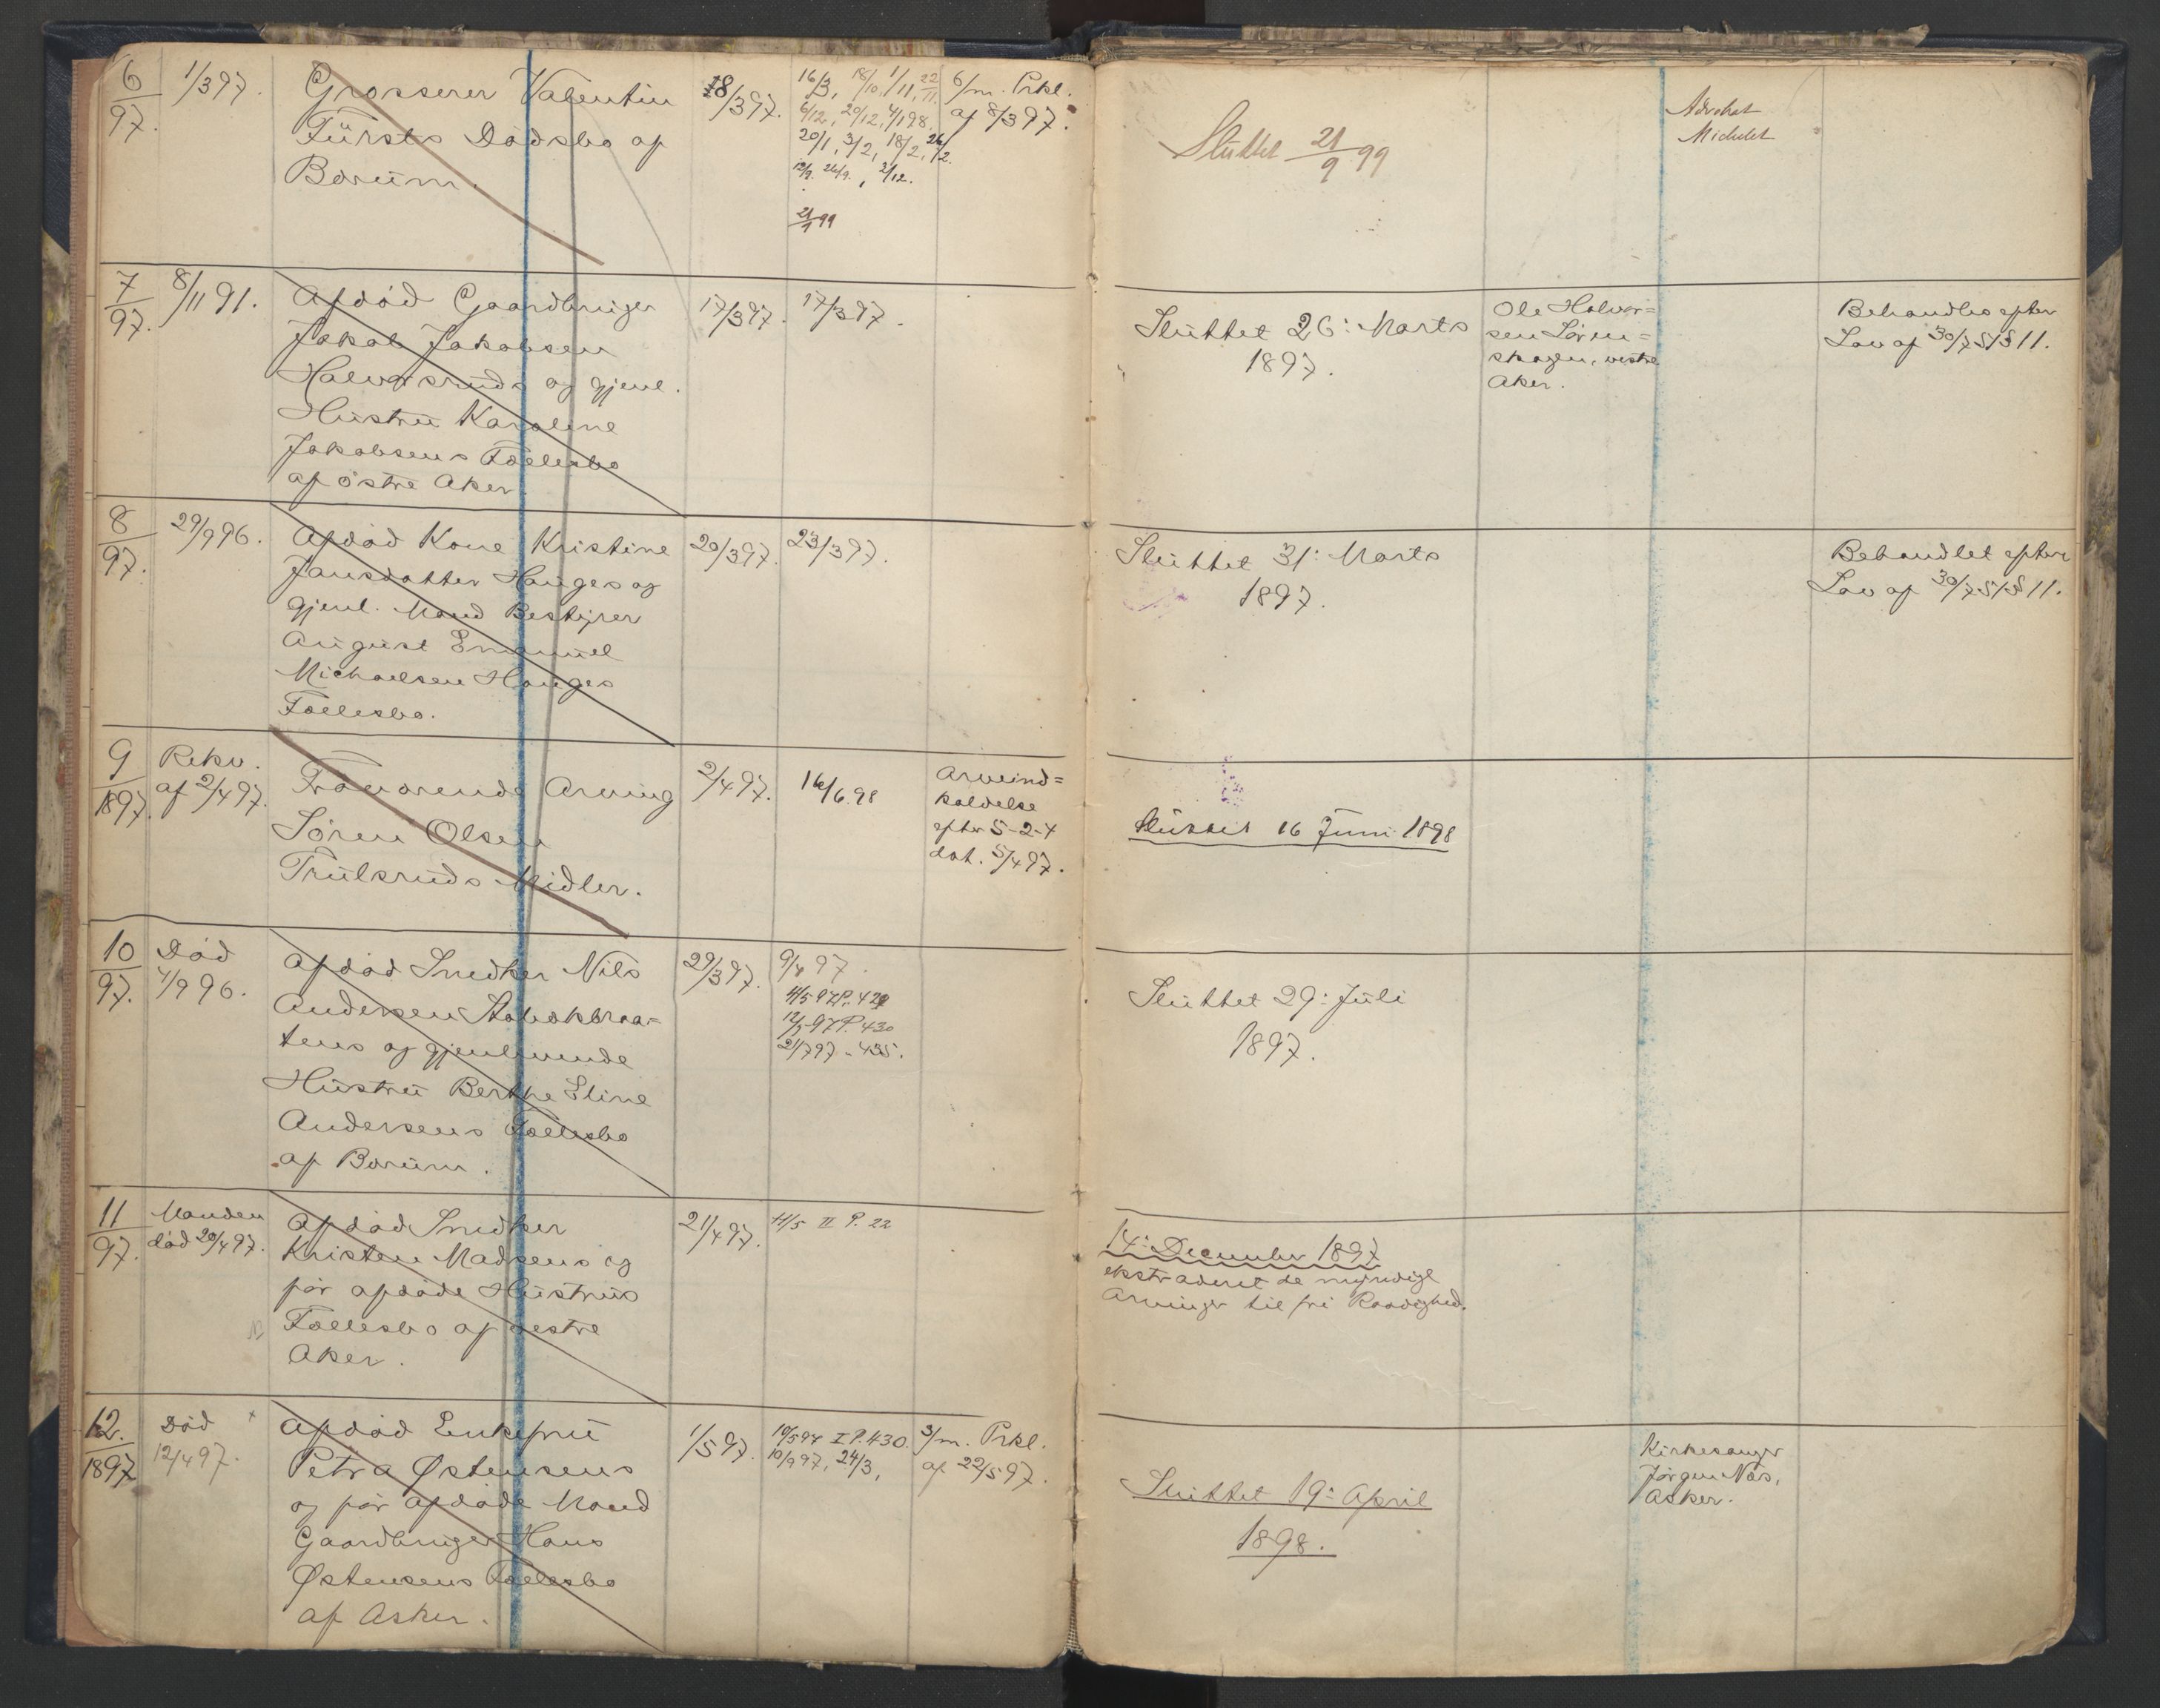 6/97. 1/3 97. Grosserer Valentin 18/3 97. 16/3, 18/10, 1/11, 22/11 6/m. Prkl.
Fürsts Dødsbo af 6/12, 20/12, 4/1 98, af 8/3 97.
Bærüm. 20/1, 3/2, 18/2, 26/2.
26/9, 2/12.
Slüttet 21/9 99
Advokat
Michelet
7/97. 8/11 91. Afdød Gaardbrüger 17/3 97. 17/3 97.
Jakob Jakobsen
Halvorsrüds og gjenl.
Hüstrü Karoline
Jakobsens Fællesbo
af østre Aker.
Slüttet 26: Marts
1897.
Ole Halvor=
sen Sørm=
skogen, vestre
Aker.
Behandles efter
Lov af 30/7 51 § 11.
8/97. 29/9 96. Afdød Kone Kristine 20/3 97. 23/3 97.
Jansdatter Haüges og
gjenl. Mand Bestyrer
Aügüst Emanüel
Michaelsen Haüges
Fællesbo.
Slüttet 31: Marts
1897.
Behandlet efter
Lov af 30/7 51 § 11.
9/1897. Rekv. Fraværende Arving 2/4 97. 16/6 98 Arveind=
af 2/4 97. Sören Olsen kaldelse
Trülsrüds Midler. efter 5-2-4
dat. 5/4 97.
Slüttet 16 Juni 1898
10/97. Død Afdød Snedker Nils 29/3 97. 9/4 97.
4/9 96. Andersen Stabækbraa= 4/5 97 P. 429
tens og gjenlevende 12/5 97 P. 430
Hüstrü Berthe Eline 21/7 97 - 435.
Andersens Fællesbo
af Bærüm.
Slüttet 29: Jüli
1897.
11/97. Manden Afdød Snedker 21/4 97. 4/5 II P. 22
død 20/4 97. Kristen Madsens og
før afdøde Hüstrüs
Fællesbo af vestre
Aker.
14: December 1897
ekstraderet de myndige
Arvinger til fri Raadighed.
12./1897 Død Afdød Enkefrü 1/5 97. 10/5 97 I P. 430. 3/m. Prkl.
12/4 97. Petra Østensens 10/9 97, 24/3, af 22/5 97.
og før afdøde Mand
Gaardbrüger Hans
Østensens Fællesbo
af Asker.
Slüttet 19: April
1898.
Kirkesanger
Jörgen Næs,
Asker.